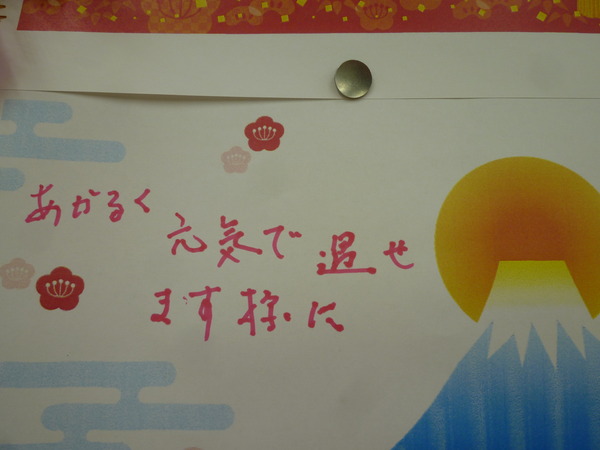 あかるく
元気で過せ
ます様に